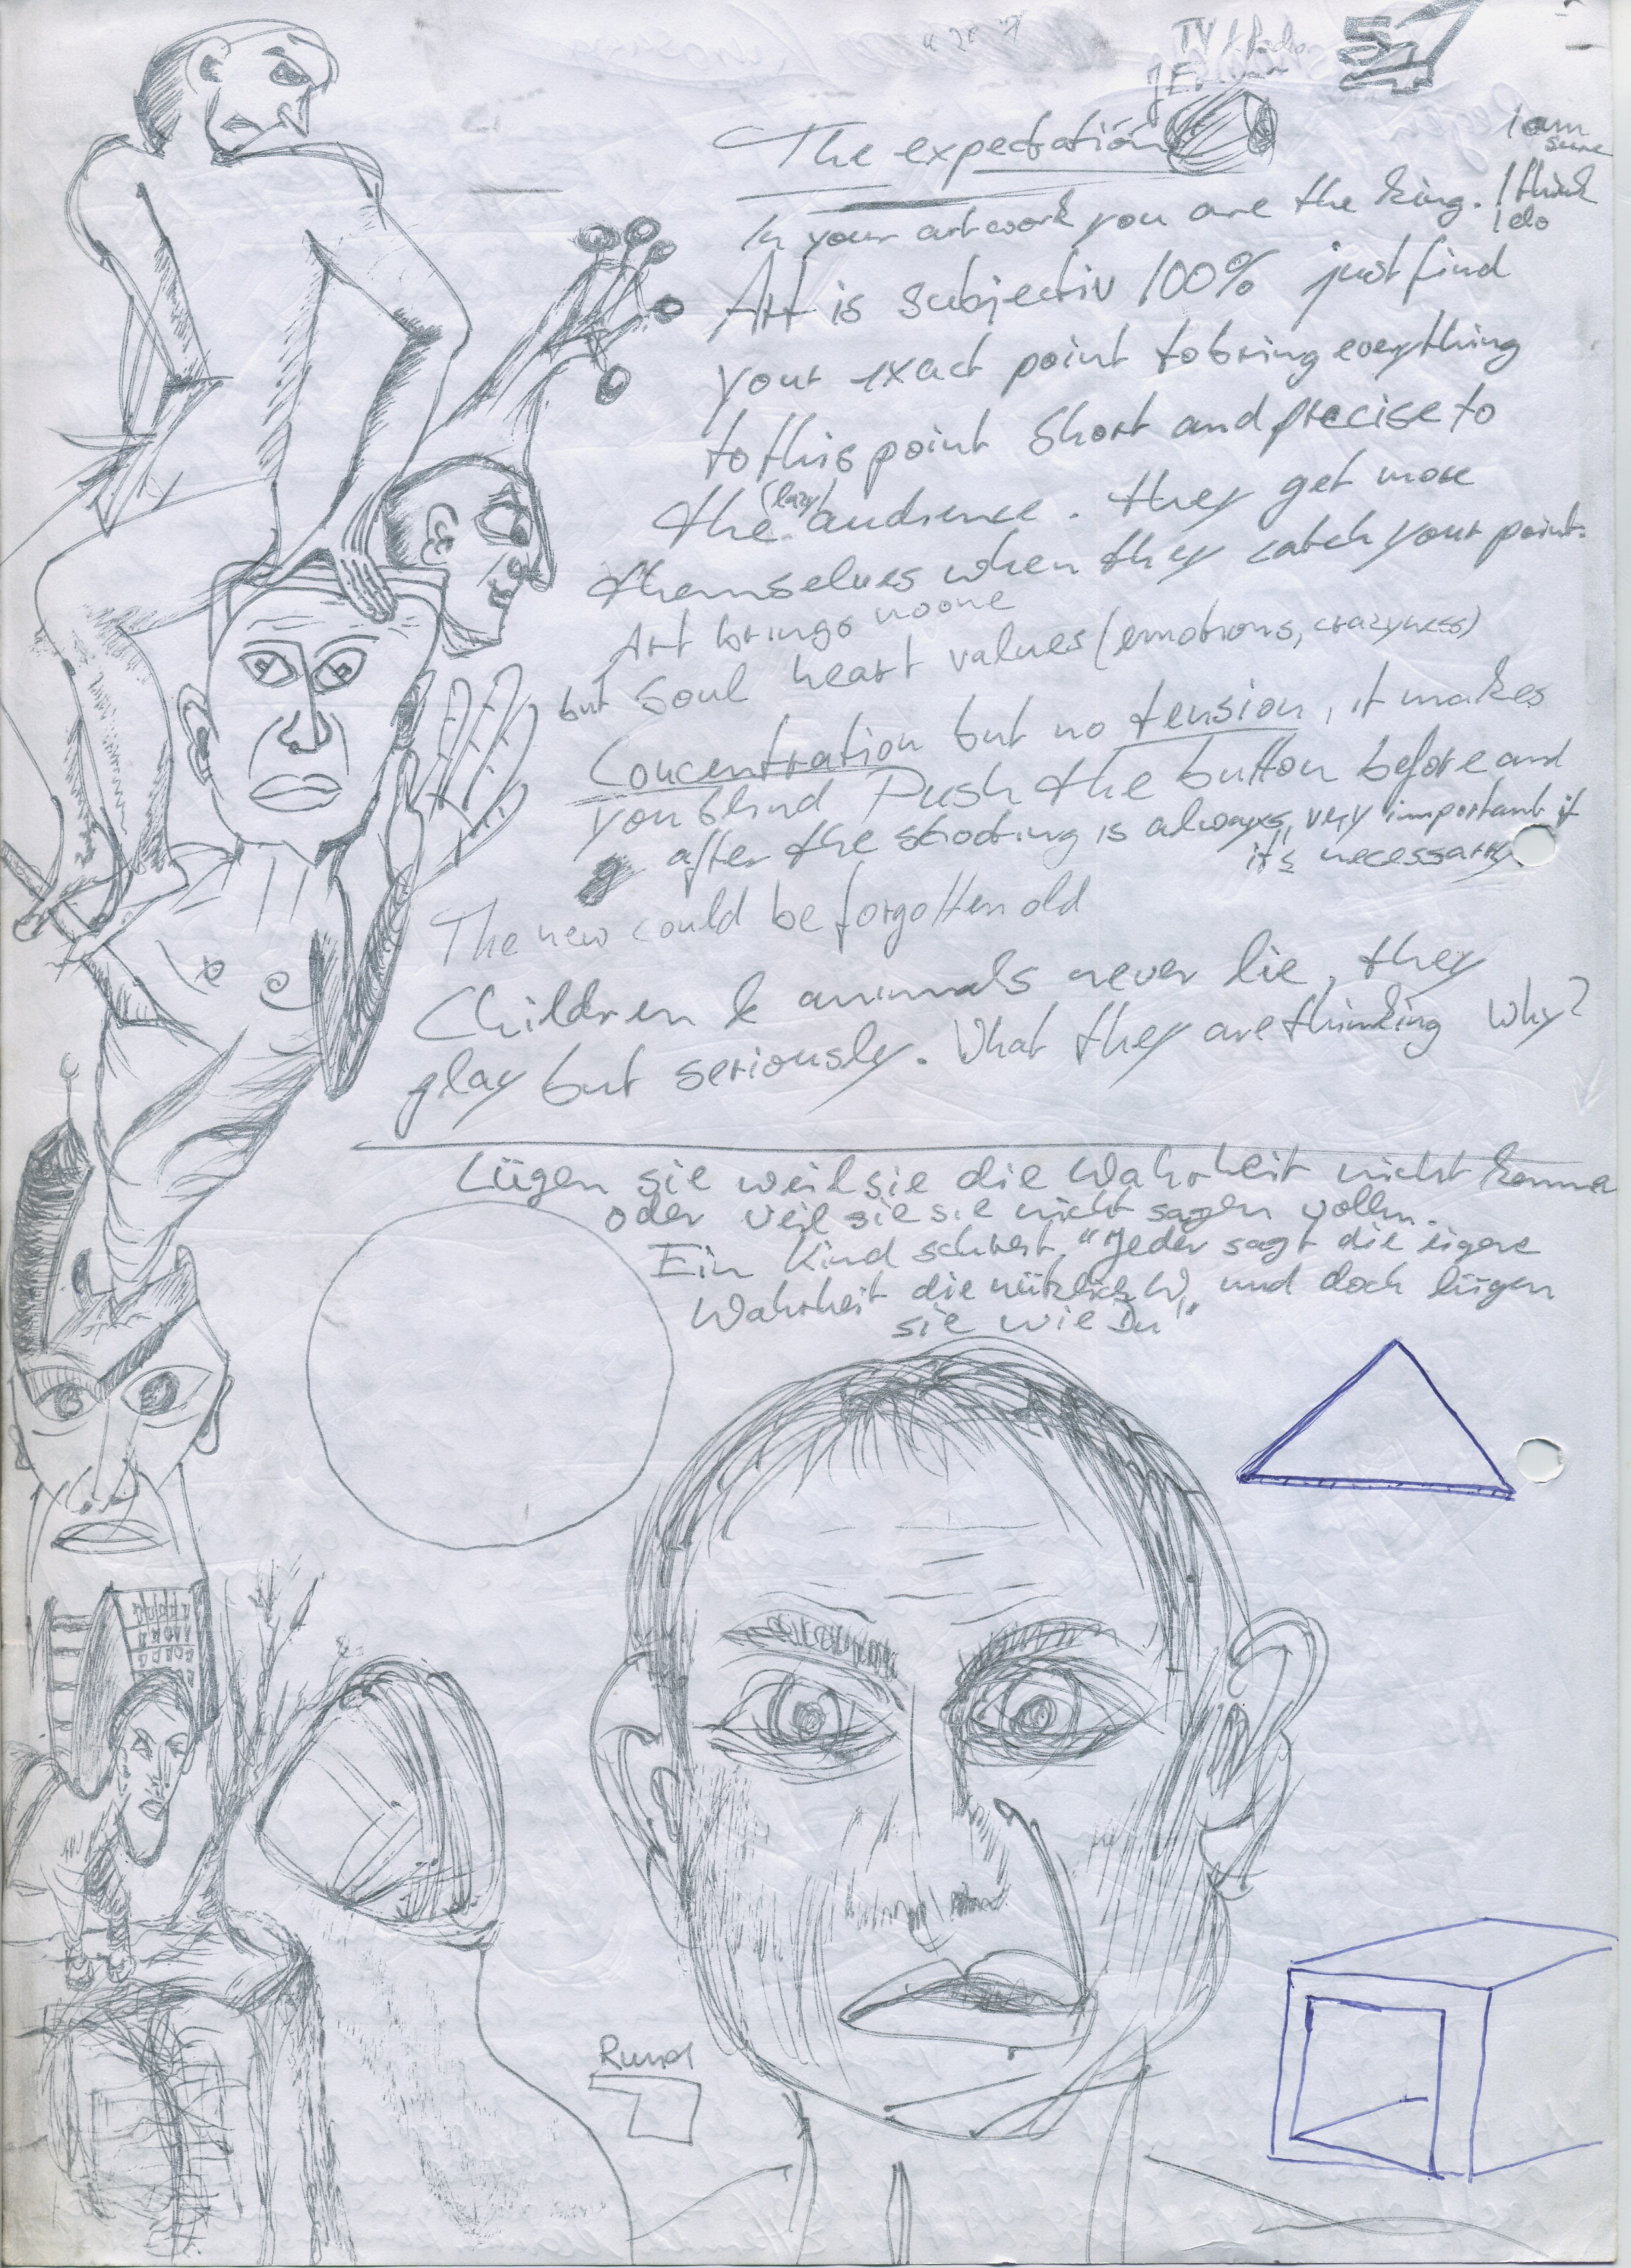 TV & Radio
The expectation
I am
sure
In your artwork you are the king. I think
I do
Art is subjectiv 100% just find
your exact point to bring everything
to this point short and precise to
the (lazy) audience. they get more
themselves when they catch your point.
Art brings noone
but soul heart values (emotions, crazyness)
Concentration but no tension, it makes
you blind Push the button before and
after the shooting is always, very important if
it's necessarry
The new could be forgotten old
Children & animals never lie, they
play but seriously. What they are thinking Why?
Lügen sie weil sie die Wahrheit nicht kenne
oder weil sie sie nicht sagen wollen.
Ein Kind schreit "Jeder sagt die eigene
Wahrheit die nützlich und doch lügen
sie wie Du"
Rund